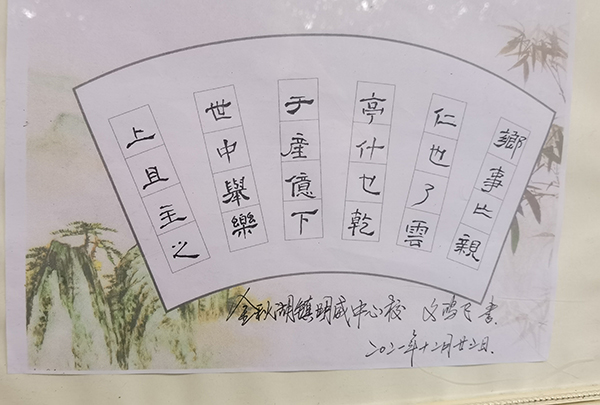 鄉事比親
仁也了雲
亭什也乾
于産億下
世中舉樂
上且主之
金秋湖镇明威中心校 文鸿飞書
二〇二一年十二月廿二日